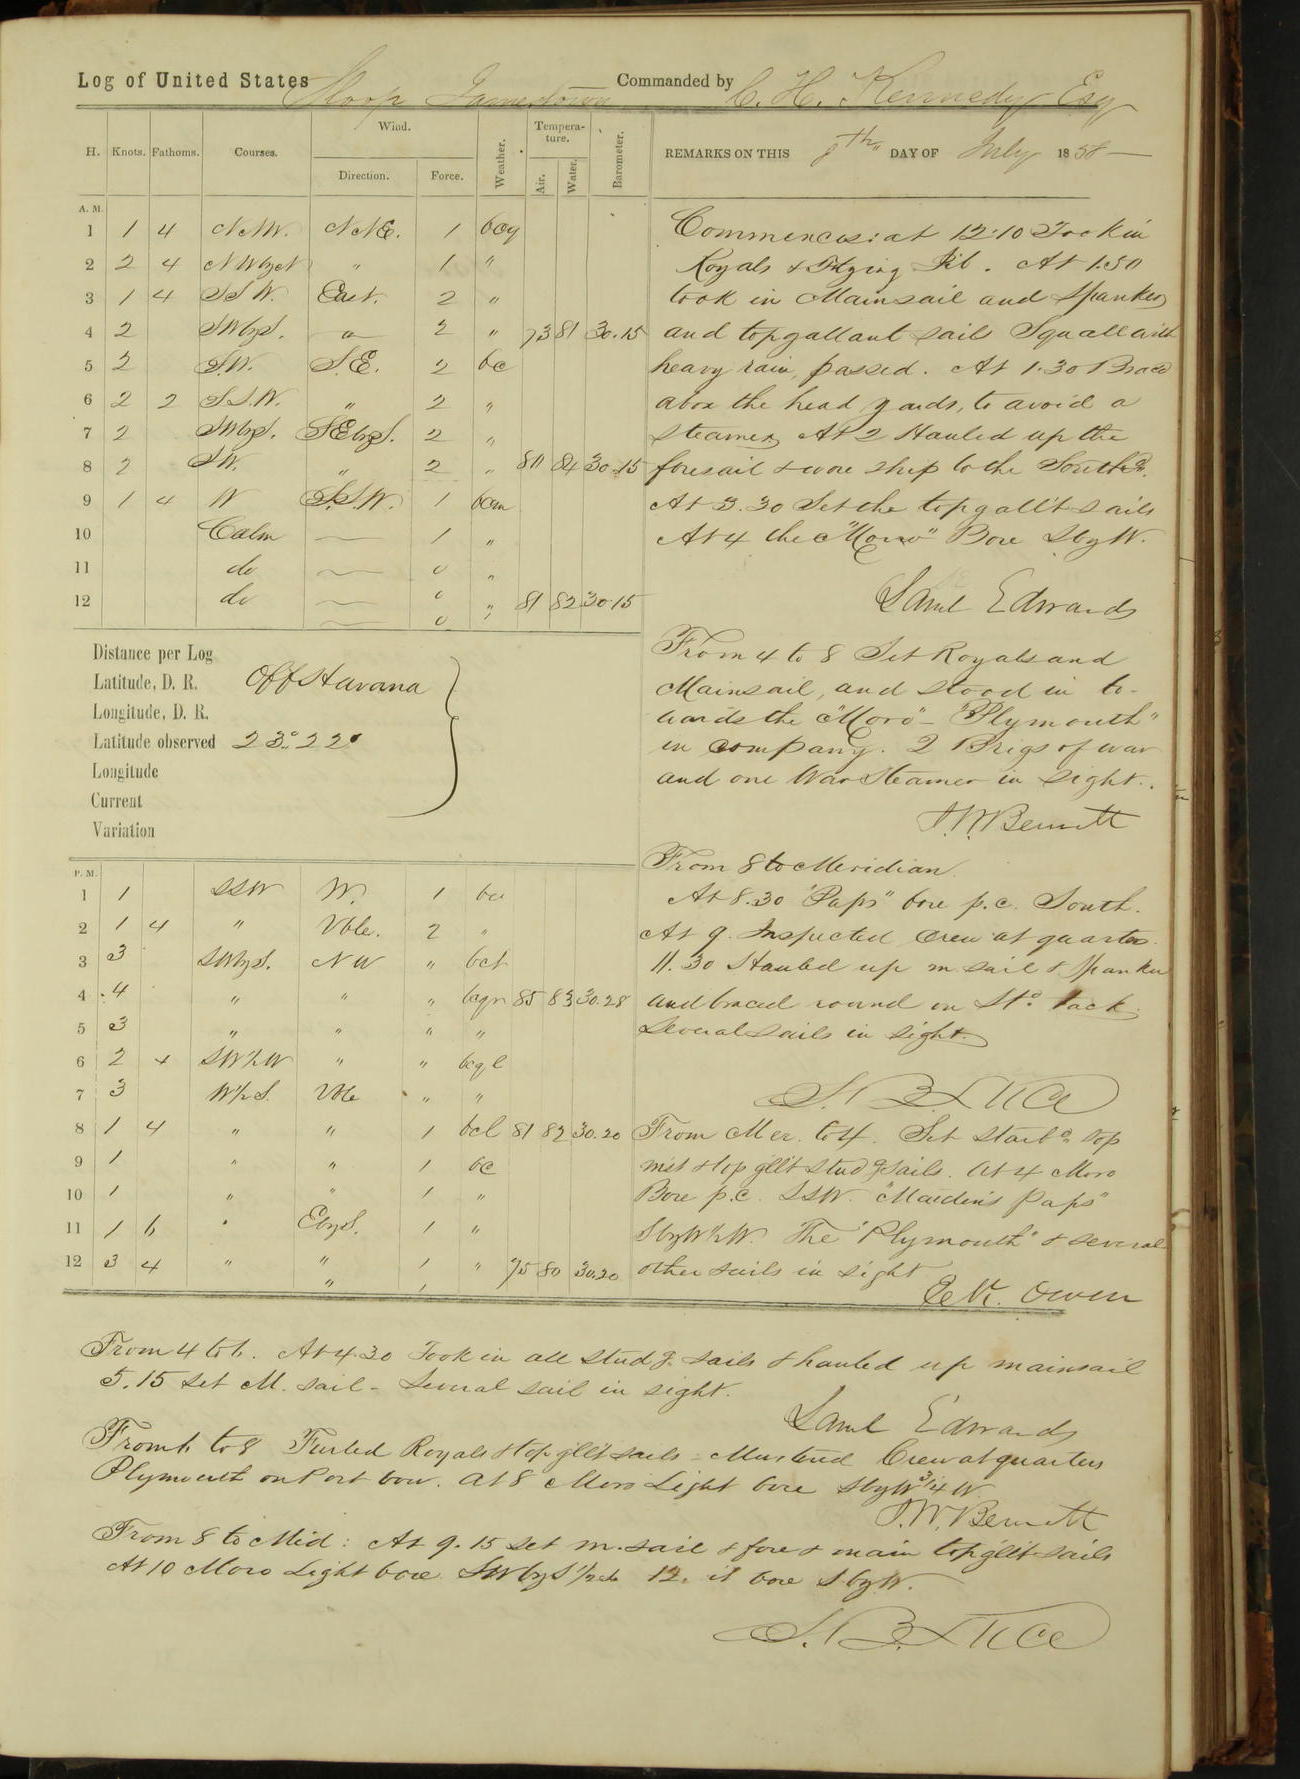 Log of United States Sloop Jamestown Commanded by C. H. Kennedy Esq
H. Knots. Fathoms. Courses. Wind. Direction. Force. Weather. Tempera-ture. Air. Water. Barometer.
REMARKS ON THIS 8th DAY OF July 1858
A. M.
1 1 4 N.N.W. N.N.E. 1 bcq
2 2 4 NWbyN " 1 "
3 1 4 S.S.W. East. 2 "
4 2 SWbyS. " 2 " 73 81 30.15
5 2 S.W. S.E. 2 bc
6 2 2 S.S.W. " 2 "
7 2 SWbyS. SEbyS. 2 "
8 2 SW. " 2 " 80 84 30.15
9 1 4 W S.S.W. 1 bcm
10 Calm — 1 "
11 do — 0 "
12 do — 0 " 81 82 30.15
— 0 "
Commences: at 12.10 Took in
Royals & Flying Jib. At 1.30
took in Mainsail and Spanker
and topgallant sails Squall with
heavy rain, passed. At 1.30 Braced
abox the head yards, to avoid a
steamer, At 2 Hauled up the
foresail & wore ship to the Southd.
At 3.30 Set the topgall't sails
At 4 the "Morro" Bore SbyW.
Saml Edwards
Distance per Log
Latitude, D. R. Off Havana
Longitude, D. R.
Latitude observed 23° 22'
Longitude
Current
Variation
From 4 to 8 Set Royals and
Mainsail, and stood in to-
wards the "Moro" - "Plymouth"
in company. 2 Brigs of war
and one War Steamer in sight.
J.W. Bennett
From 8 to Meridian.
At 8.30 "Paps" bore p.c. South.
At 9. Inspected Crew at quarters.
11.30 Hauled up m. sail & Spanker
and braced round on St'd. tack.
Several sails in sight.
S. B. Luce
P. M.
1 1 SSW W. 1 bc
2 1 4 " Vble. 2 "
3 3 SWbyS. NW " bct
4 4 " " " bcqr 85 83 30.28
5 3 " " " "
6 2 4 SW½W " " bcql
7 3 W½S. Vble " "
8 1 4 " " 1 bcl 81 82 30.20
9 1 " " 1 bc
10 1 " " 1 "
11 1 6 " EbyS. 1 "
12 3 4 " " 1 " 75 80 30.20
" 1
From Mer. to 4. Set Starbd top
mst & top gll't Studg Sails. At 4 Moro
Bore p.c. SSW. "Maiden's Paps"
SbyW½W. The "Plymouth" & several
other sails in sight
E.K. Owen
From 4 to 6. At 4.30 Took in all studg. sails & hauled up mainsail
5.15 Set M. sail - Several sail in sight.
Saml Edwards
From 6 to 8 Furled Royals & top gllt sails - Mustered Crew at quarters
Plymouth on Port bow. At 8 Moro Light bore SbyW 3/4 W.
J.W. Bennett
From 8 to Mid: At 9.15 set m. sail & fore & main topgllt sails
At 10 Moro Light bore SWbyS½S 12. it bore SbyW.
S. B. Luce